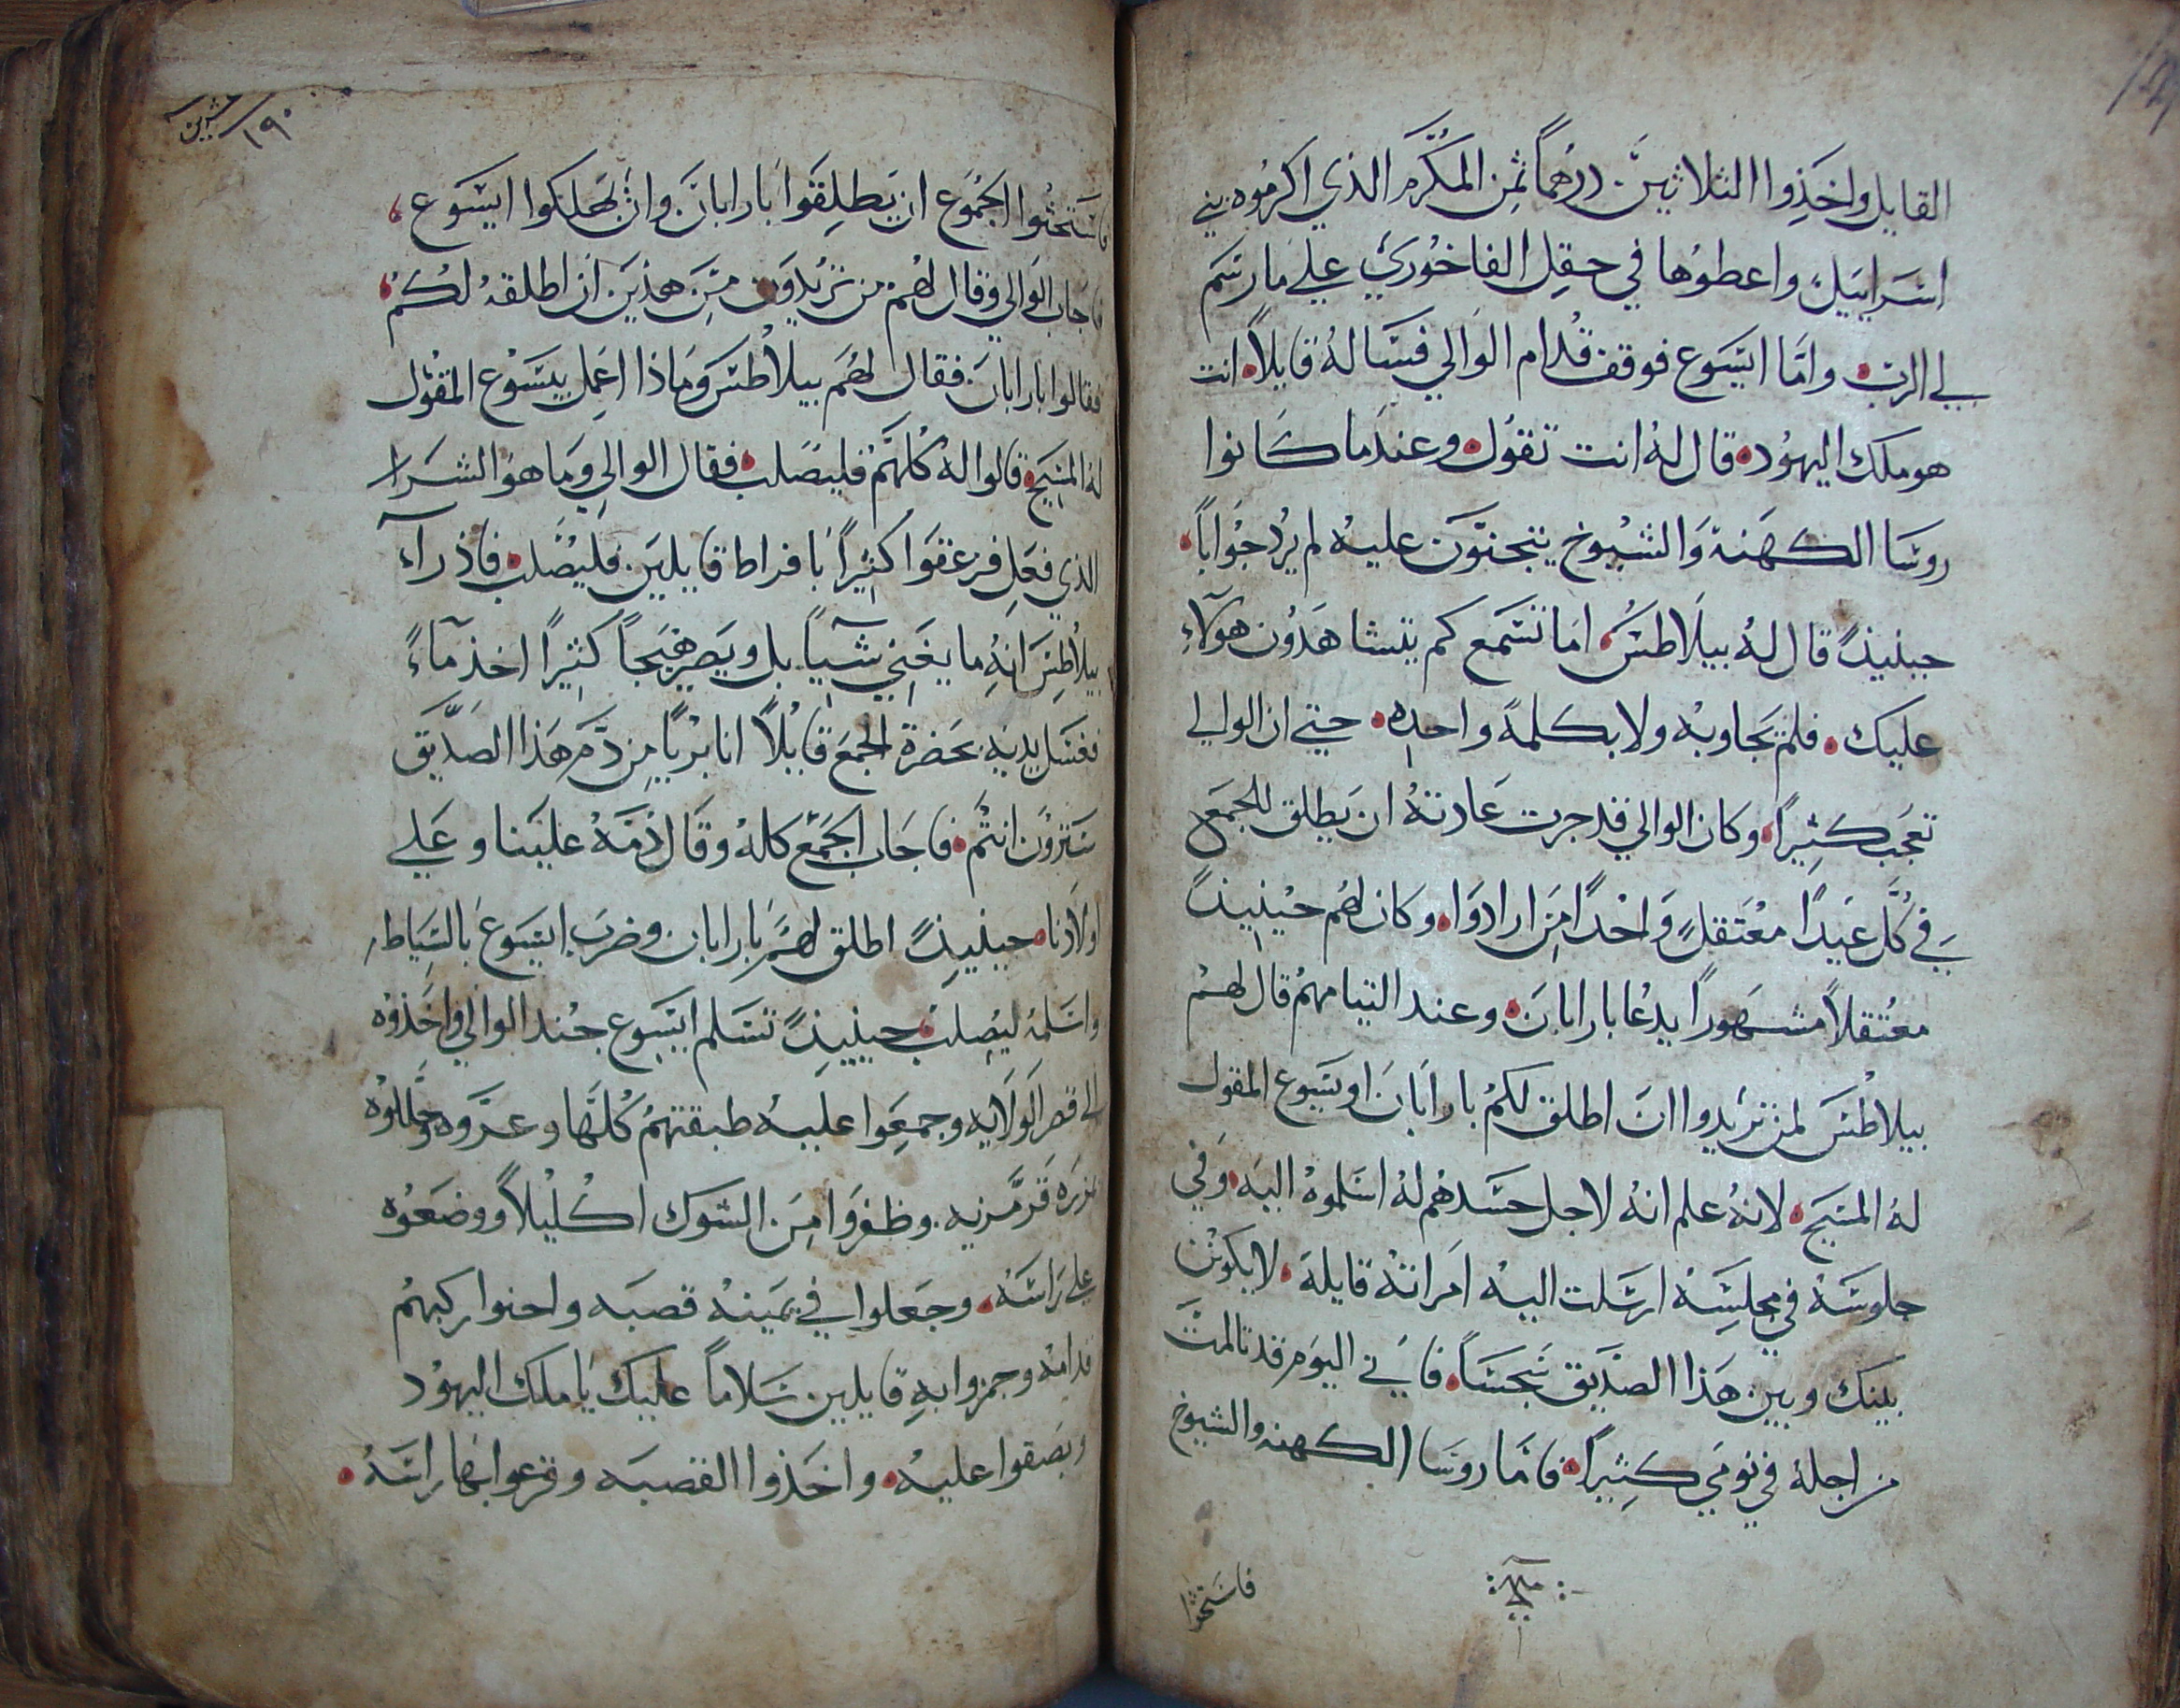 القايل واخذوا الثلاثين درهماً ثمن المكرّم الذي اكرموه بني
اسراييل واعطوها في حقل الفاخوري علي ما رسم
لي الرب وامّا ايسوع فوقف قدام الوالي فساله قايلاً انت
هو ملك اليهود قال له انت تقول وعندما كانوا
روسا الكهنة والشيوخ يتجنّون عليه لم يرد جواباً
حينيذٍ قال له بيلاطس اما تسمع كم يتشاهدون هولآء
عليك فلم يجاوبه ولا بكلمة واحده حتي ان الوالي
تعجب كثيراً وكان الوالي قد جرت عادته ان يطلق للجمع
في كل عيداً معتقلٍ واحداً من ارادوا وكان لهم حينيذٍ
معتقلاً مشهوراً يدعا بارابان وعند التيامهم قال لهم
بيلاطس لمن تريدوا ان اطلق لكم بارابان او يسوع المقول
له المسيح لانه علم انه لاجل حسدهم له اسلموه اليه وفي
جلوسه في مجلسه ارسلت اليه امراته قايلة لا يكون
بينك وبين هذا الصديق نجساً فانني اليوم قد تالمت
من اجله في نومي كثيراً فامّا روسا الكهنه والشيوخ
فاستحثوا
١٩٠
فاستحثوا الجموع ان يطلقوا بارابان وان يهلكوا ايسوع
فاجاب الوالي وقال لهم من تريدون من هذين ان اطلقه لكم
فقالوا بارابان فقال لهم بيلاطس وماذا اعمل بيسوع المقول
له المسيح قالوا له كلهم فليصلب فقال الوالي وما هو الشر
الذي فعل فزعقوا كثيراً بافراط قايلين فليصلب فاذ رآء
بيلاطس انه ما يغني شياً بل ويصير هيجاً كثيراً اخذ مآءً
فغسل يديه بحضرة الجمع قايلاً انا برياً من دم هذا الصديق
ستروْن انتم فاجاب الجمع كله وقال دمه علينا وعلي
اولادنا حينيذٍ اطلق لهم بارابان وضرب ايسوع بالسياط
واسلمه ليصلب حينيذٍ تسلم ايسوع جند الوالي واخذوه
الي قصر الولايه وجمعوا عليه طبقتهم كلها وعرّوه وجللوه
قرمزيه وظفروا من الشوك اكليلاً ووضعوه
علي راسه وجعلوا في يمينه قصبه واحنوا ركبهم
قدامه وجمزوا به قايلين سلاماً عليك يا ملك اليهود
وبصقوا عليه واخذوا القصبه وقرعوا بها راسه